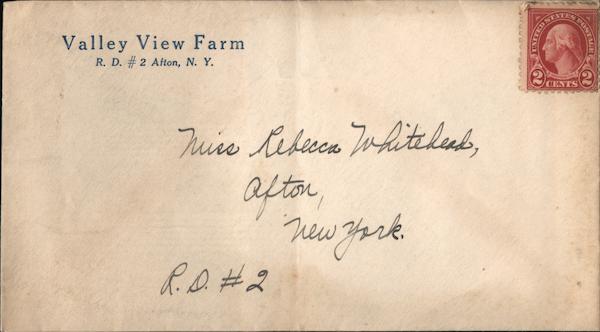 Valley View Farm
R. D. # 2 Afton, N. Y.
UNITED STATES POSTAGE
2 CENTS 2
Miss Rebecca Whitehead,
Afton,
New York.
R. D. # 2